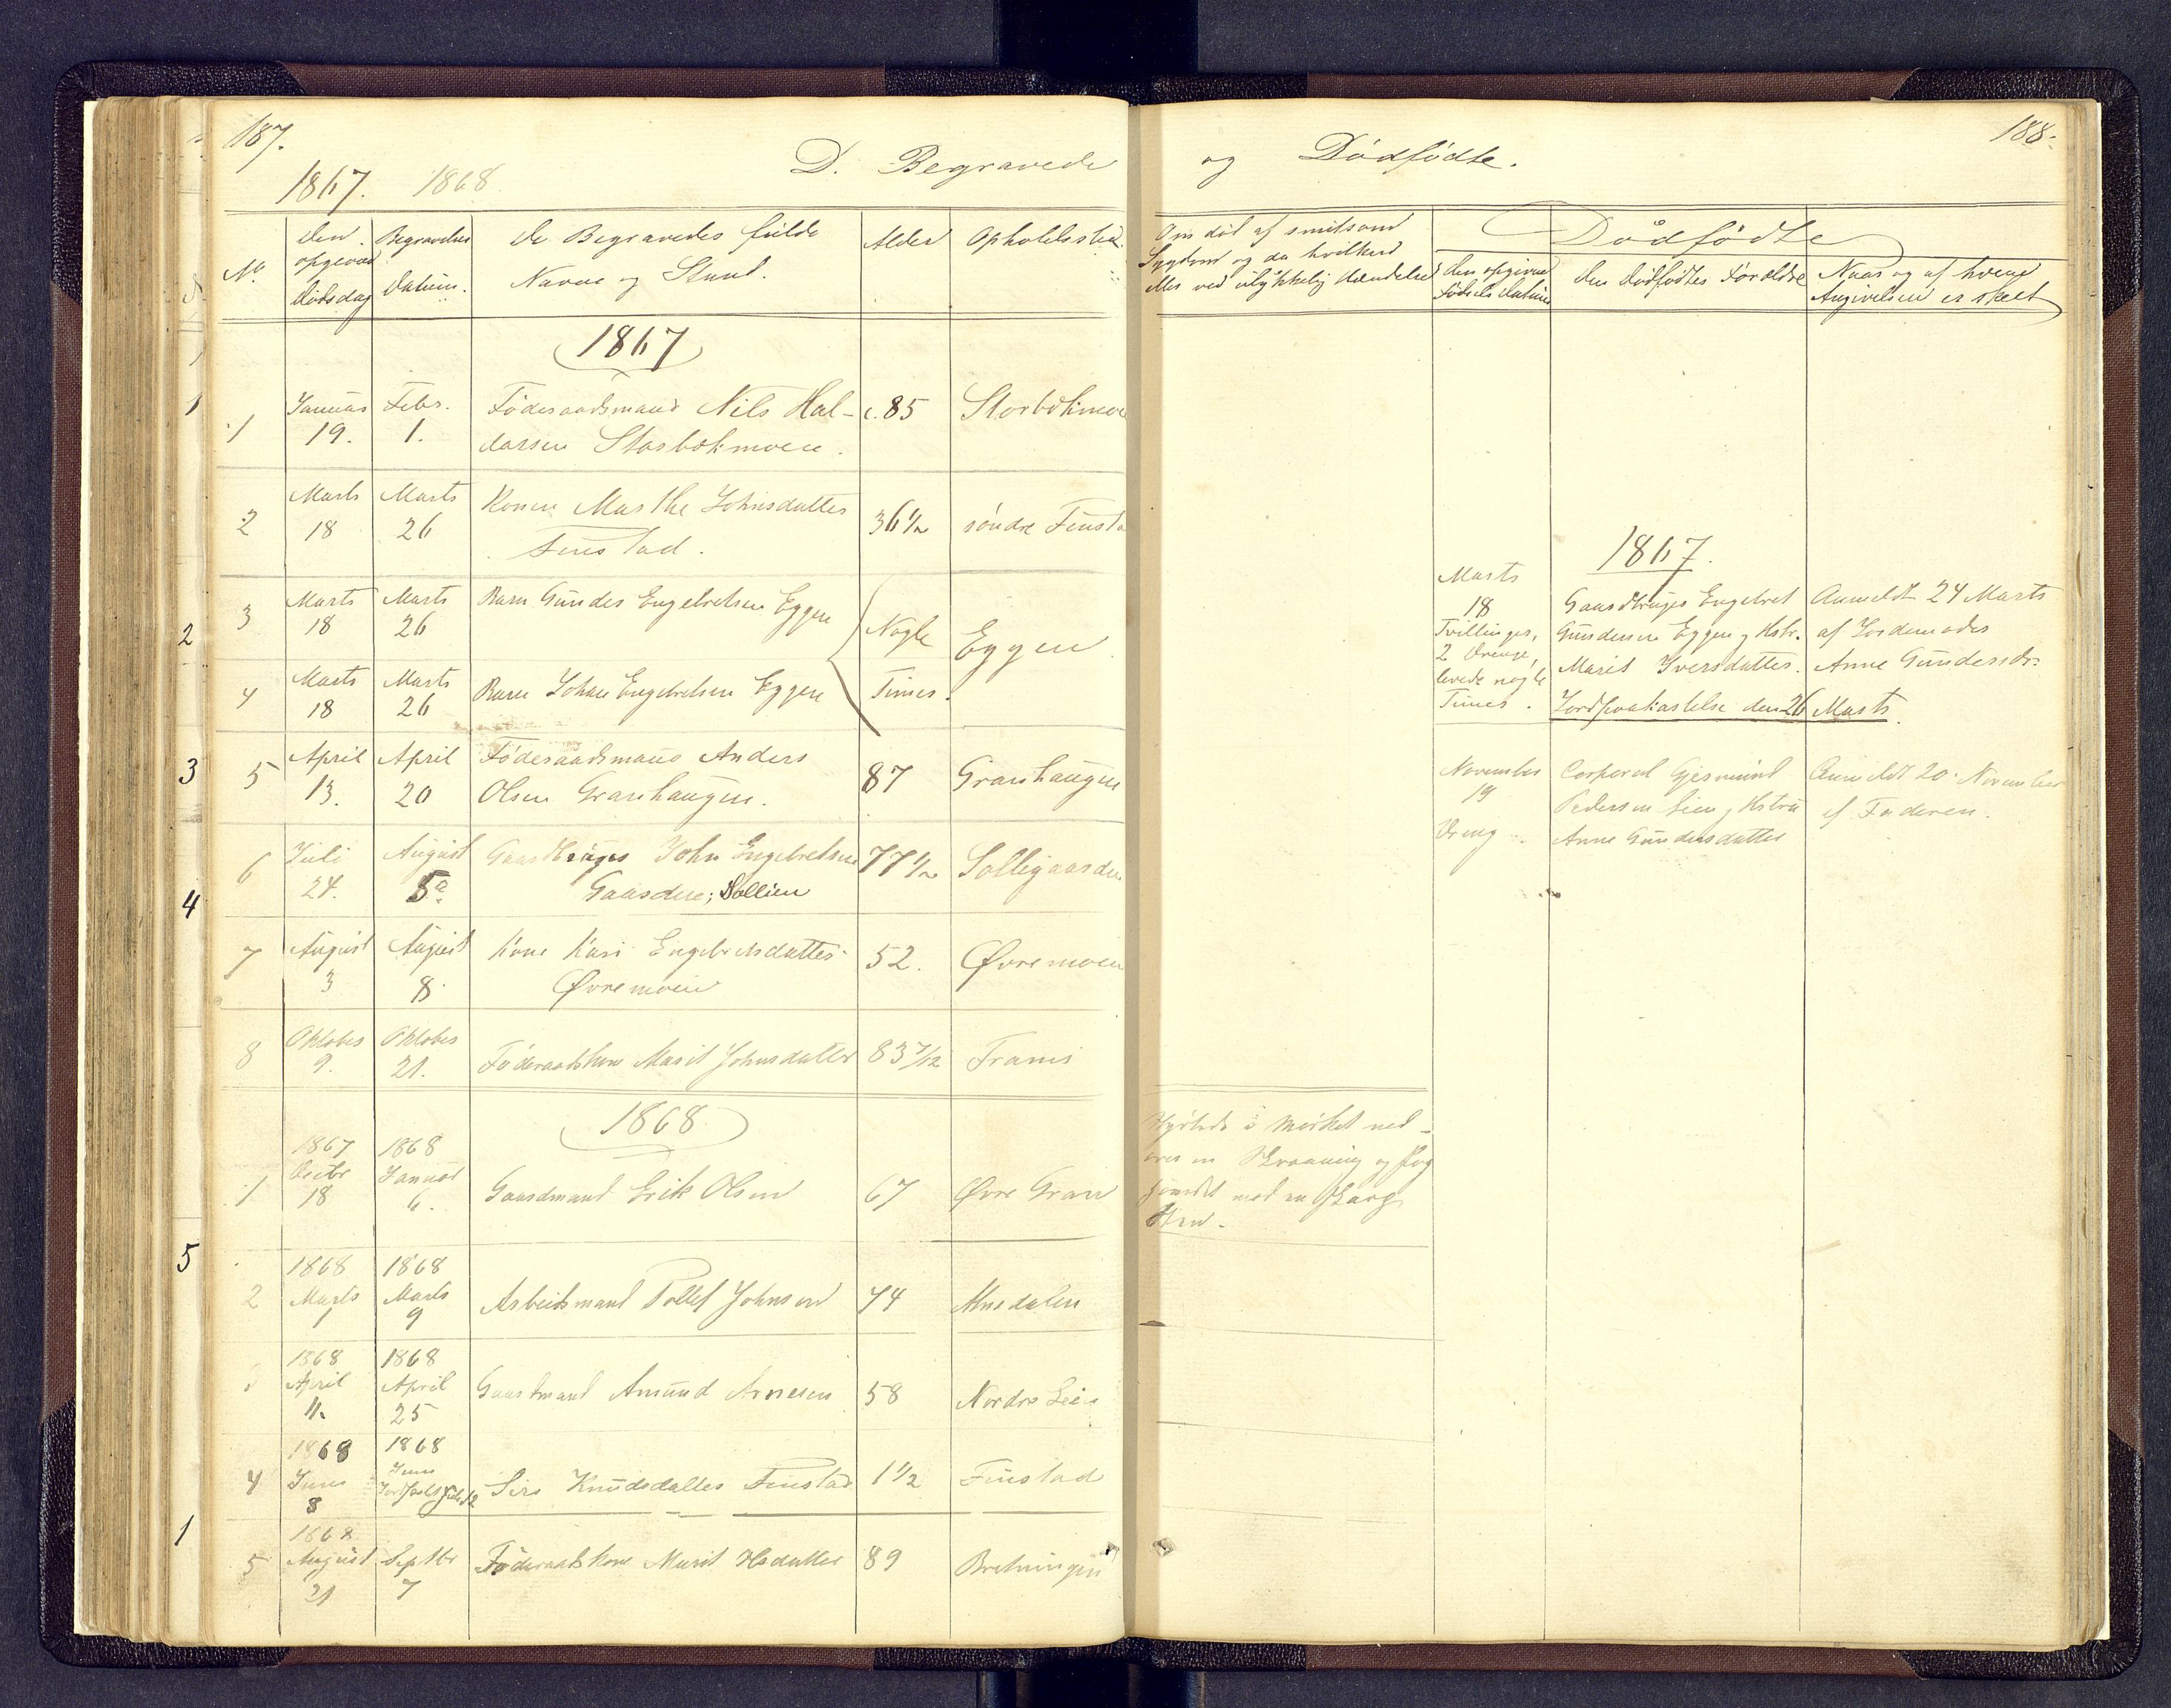 187.
1867. 1868
D. Begravede
No. den opgivne Dødsdag Begravelses Datum. De Begravedes fulde Navne og Stand. Alder Opholdssted
1867
1 Januar 19. Febr. 1. Föderaadsmand Nils Hal- c. 85 Storbekmoe
darsen Storbekmoen.
2 Marts 18 Marts 26 Konen Marthe Johnsdatter 36 1/2 söndre Finsta
Finstad.
3 Marts 18 Marts 26 Barn Gunder Engebretsen Eggen Nogle Eggen
4 Marts 18 Marts 26 Barn Johan Engebretsen Eggen Timer.
5 April 13. April 20 Föderaadsmand Anders 87 Granhaugen
Olsen Granhaugen.
6 Juli 24. August 5 Gaardbruger John Engebretsen 77 1/2 Solligaarden
Gaarden; Sollien
7 August 3 August 8. Kone Kari Engebretsdatter 52. Øvremoen
Øvremoen
8 Oktober 9. Oktober 21. Föderaadskone Marit Johnsdatter 83 7/12
1868
1 1867 Decbr 18 1868 Januar 6. Gaardmand Erik Olsen 67 Øvre Gran
2 1868 Marts 1 1868 Marts 9 Arbeidsmand Tollef Johnsen 74
1868 April 11. 1868 April 25 Gaardmand Amund Arnesen 58 Nordre Lien
4 1868 Juni 8 1868 Juni Siri Knudsdatter Finstad 1 1/2 Finstad
5 1868 August 21 Septbr 7 Föderaadskone Marit 89 Bretningen
1
2
3
4
5
1
188.
og Dødfødte.
Om död af smitsom
Sygdom og da hvilken
eller ved ulykkelig Hændelse
Dødfødte
Den opgivne Födsels datum Den dödfödtes Forældre Naar og af hvem Angivelsen er skeet
1867.
Marts
18 Gaardbruger Engebret Anmeldt 24 Marts
Tvillinger, Gundersen Eggen og Hstr. af Jordemoder
2 Drenge, Marit Iversdatter. Anne Gundersdr.
levede nogle
Timer. Jordpaakastelse den 26 Marts.
November Corporal Gjermund Anmeldt 20. November
19 Pedersen Lien og Hstru af Faderen.
Dreng Anne Gundersdatter
Styrtede i Mörket ned-
over en Skraaning og slog
mod en skarp
Sten.